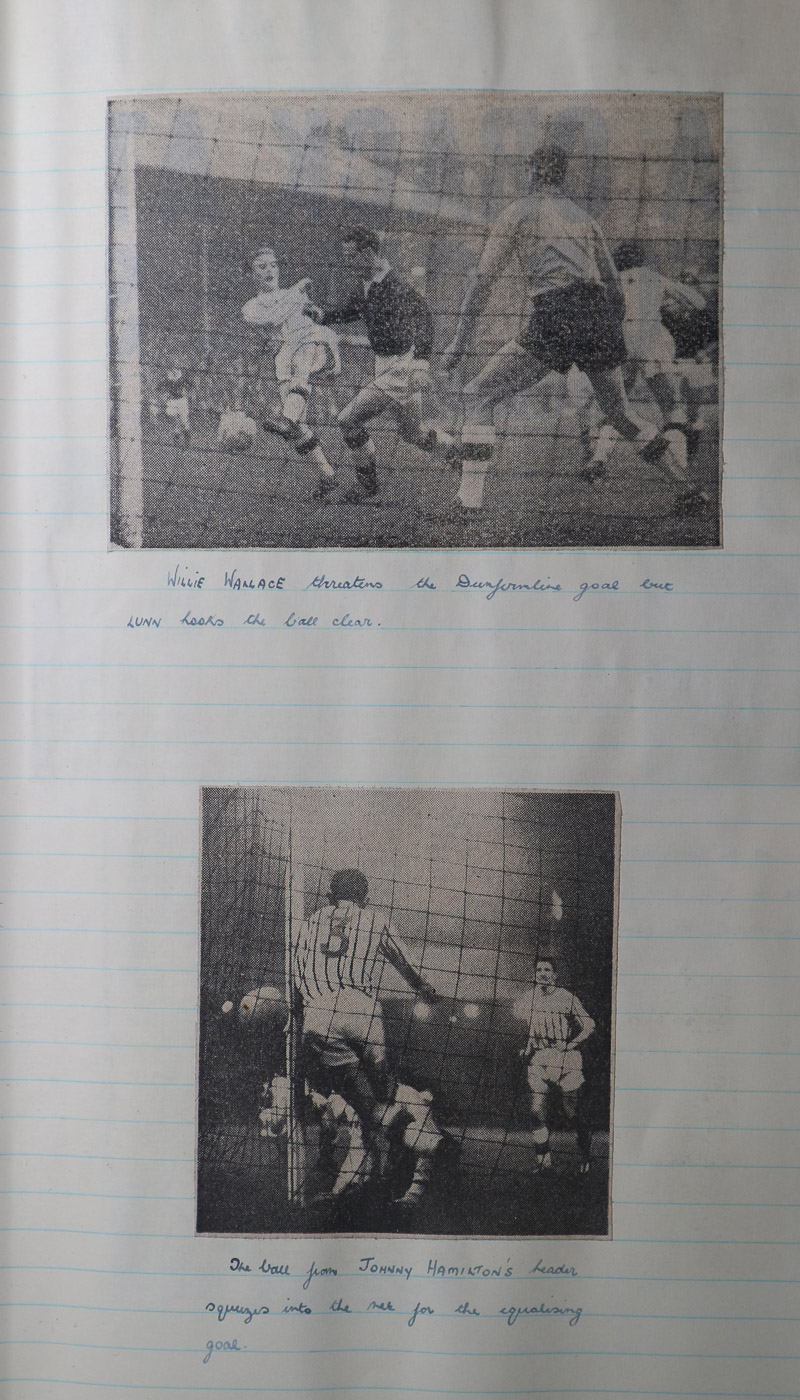 WILLIE WALLACE threatens the Dunfermline goal but
LUNN hooks the ball clear.
3
The ball from JOHNNY HAMILTON'S header
squeezes into the net for the equalising
goal.